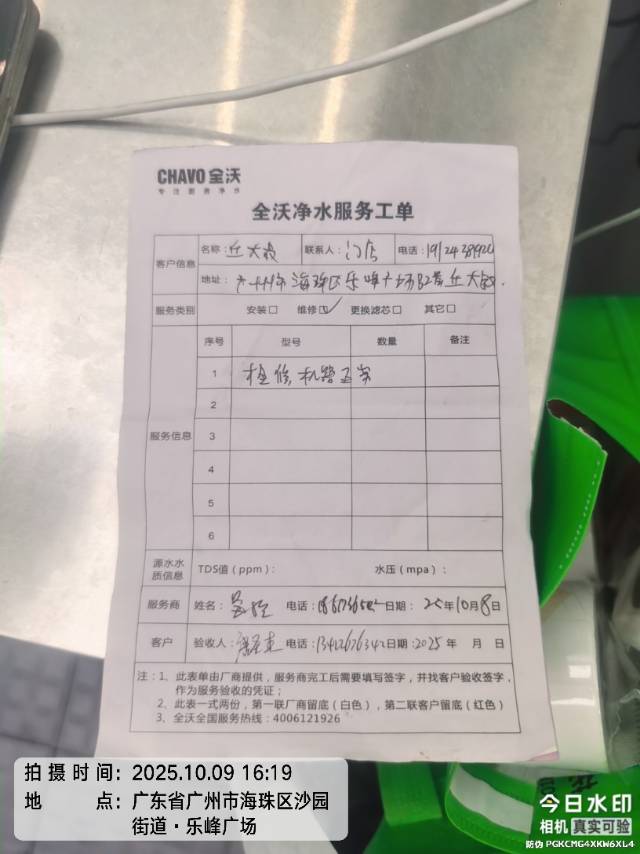 CHAVO 全沃
专注厨房净水
全沃净水服务工单
客户信息
名称：丘大叔 联系人：门店 电话：
地址：广州市海珠区乐峰广场 丘大叔
服务类别 安装□ 维修☑ 更换滤芯□ 其它□
服务信息
序号 型号 数量 备注
1 检修，机器正常
2
3
4
5
6
源水水质信息 TDS值（ppm）： 水压（mpa）：
服务商 姓名： 电话： 日期：25年10月8日
客户 验收人： 电话：13422676342 日期：2025年 月 日
注：1、此表单由厂商提供，服务商完工后需要填写签字，并找客户验收签字，
作为服务验收的凭证；
2、此表一式两份，第一联厂商留底（白色），第二联客户留底（红色）
3、全沃全国服务热线：4006121926
拍摄时间：2025.10.09 16:19
地 点：广东省广州市海珠区沙园
街道·乐峰广场
今日水印
相机 真实可验
防伪 PGKCMG4XKW6XL4